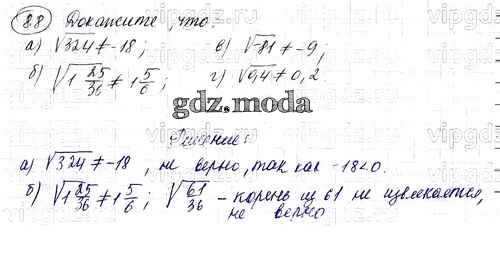 8.8 Докажите, что:
а) √324 ≠ -18; в) √-81 ≠ -9;
б) √1 25/36 ≠ 1 5/6; г) √0,4 ≠ 0,2.
gdz.moda
Решение:
а) √324 ≠ -18, не верно, так как -18<0.
б) √1 25/36 ≠ 1 5/6; √61/36 - корень из 61 не извлекается,
не верно